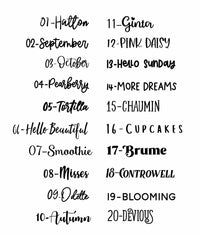 01-Halton
02-September
03-October
04-Pearberry
05-Tortilla
06-Hello Beautiful
07-Smoothie
08-Misses
09-Odette
10-Autumn
11-Ginter
12-PINK DAISY
13-Hello Sunday
14-MORE DREAMS
15-CHAUMIN
16-CUPCAKES
17-Brume
18-CONTROWELL
19-BLOOMING
20-DEVIOUS